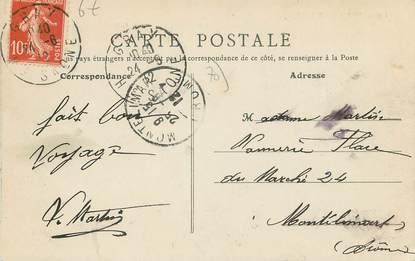 CARTE POSTALE
pays étrangers n'acceptant pas la correspondance de ce côté, se renseigner à la Poste
Correspondance
Adresse
fait bon
voyage
V. Martin
Madame Martin
Vannerie Place
du Marché 24
Montélimart
(Drôme)
10